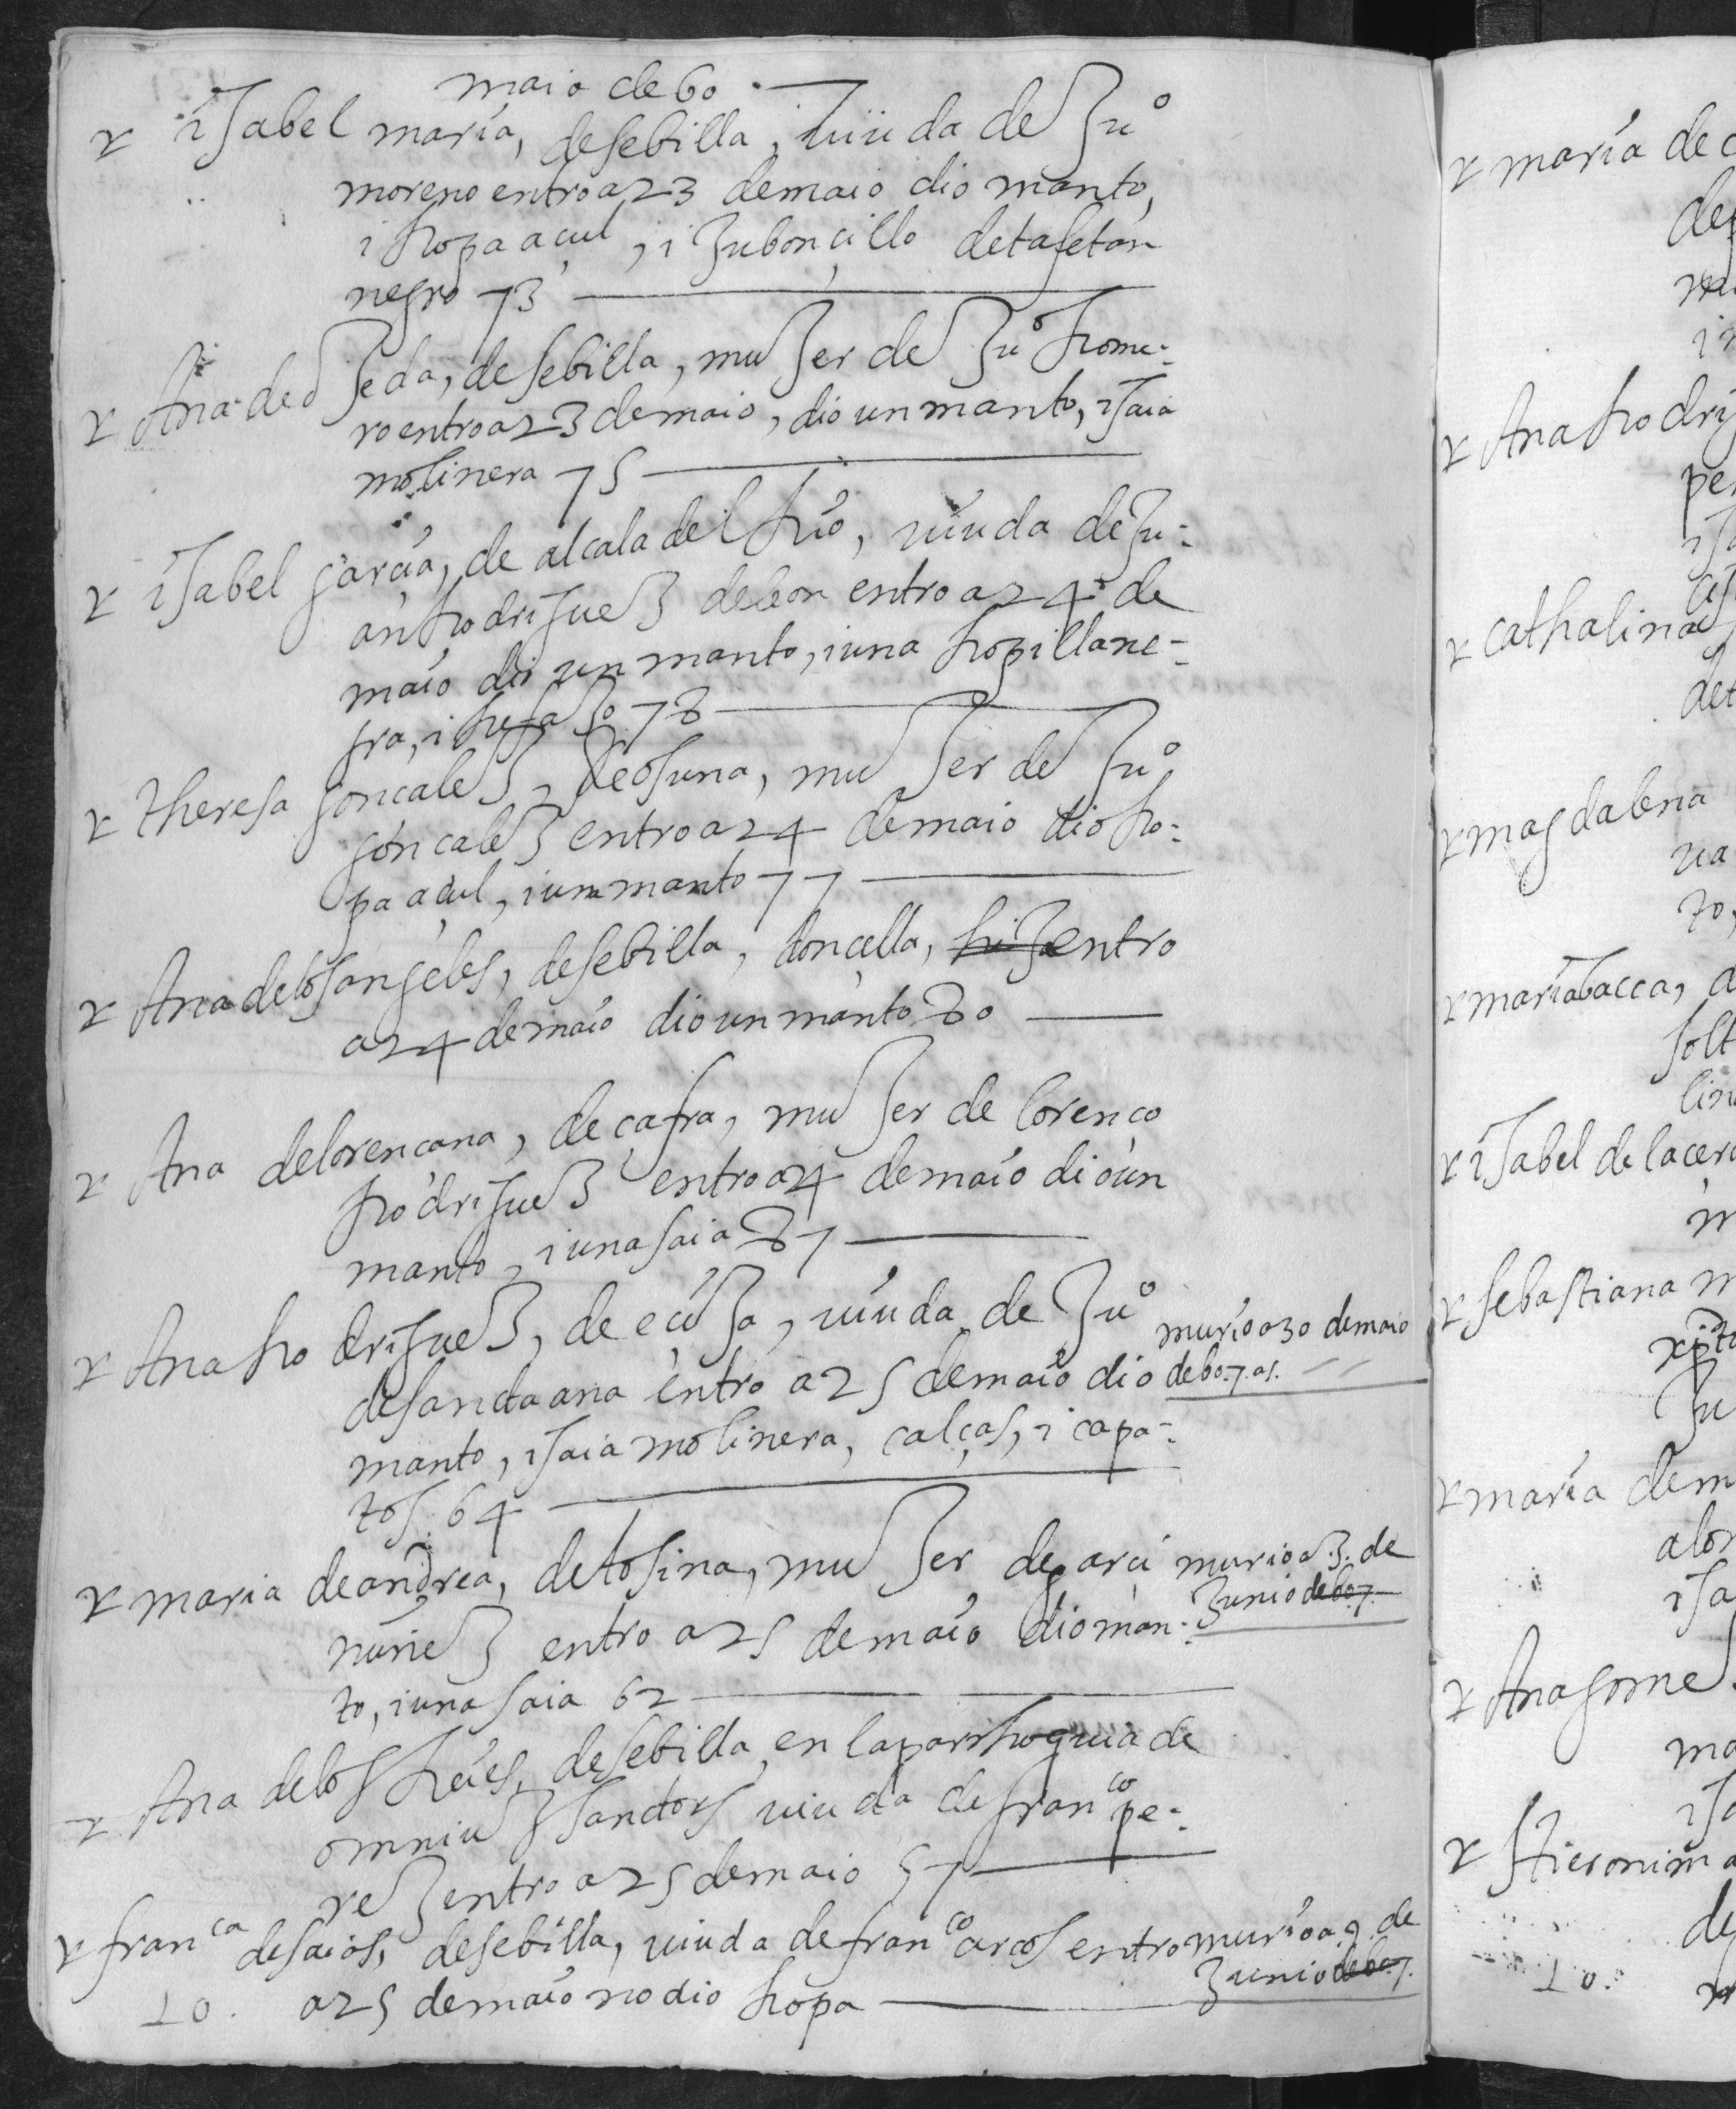 maio de 60.
r isabel maria, de sebilla, viuda de Juº
moreno entro a 23 de maio dio manto,
i rropa açul, i Juboncillo de tafetan
negro 73
r Ana de oJeda, de sebilla, muJer de Juº rrome-
ro entro a 23 de maio, dio un manto, i saia
molinera 75
r isabel garcia, de alcala del rrio, viuda de Ju-
an rrodriguez de leon entro a 24 de
maio dio un manto, i una rropilla ne-
gra, i refaJo 78
r theresa goncalez, de osuna, muJer de Juº
goncalez entro a 24 de maio dio rro-
pa açul, i un manto 77
r Ana de los angeles, de sebilla, doncella, hiJa entro
a 24 de maio dio un manto 80
r Ana de lorencana, de çafra, muJer de lorenco
rrodriguez entro a 24 de maio dio un
manto, i una saia 87
r Ana rrodriguez, de eciJa, viuda de Juº
de santa ana entro a 25 de maio dio
manto, i saia molinera, calças, i capa-
tos 64
murio a 30 de maio
de 60.7. as.
r maria de andrea, de tosina, muJer de garci
nuñez entro a 25 de maio dio man-
to, i una saia 62
murio a 3. de
Junio de 60.7.
r Ana de los rreies, de sebilla, en la parrhoquia de
omnium sanctors viuda de franco pe-
rez entro a 25 de maio 57
r franca de saios, de sebilla, viuda de franco arcos entro
a 25 de maio no dio rropa
murio a 9 de
Junio de 60.7.
10.
r maria de
r Ana rrodri
pe
r cathalina
det
r magdalena
va
to,
r maria bacca, d
solt
lin
r isabel de la cer
m
r sebastiana m
Ju
r maria de m
alon
i sa
r Ana gome
ma
i sa
r Hieronima
de
10.